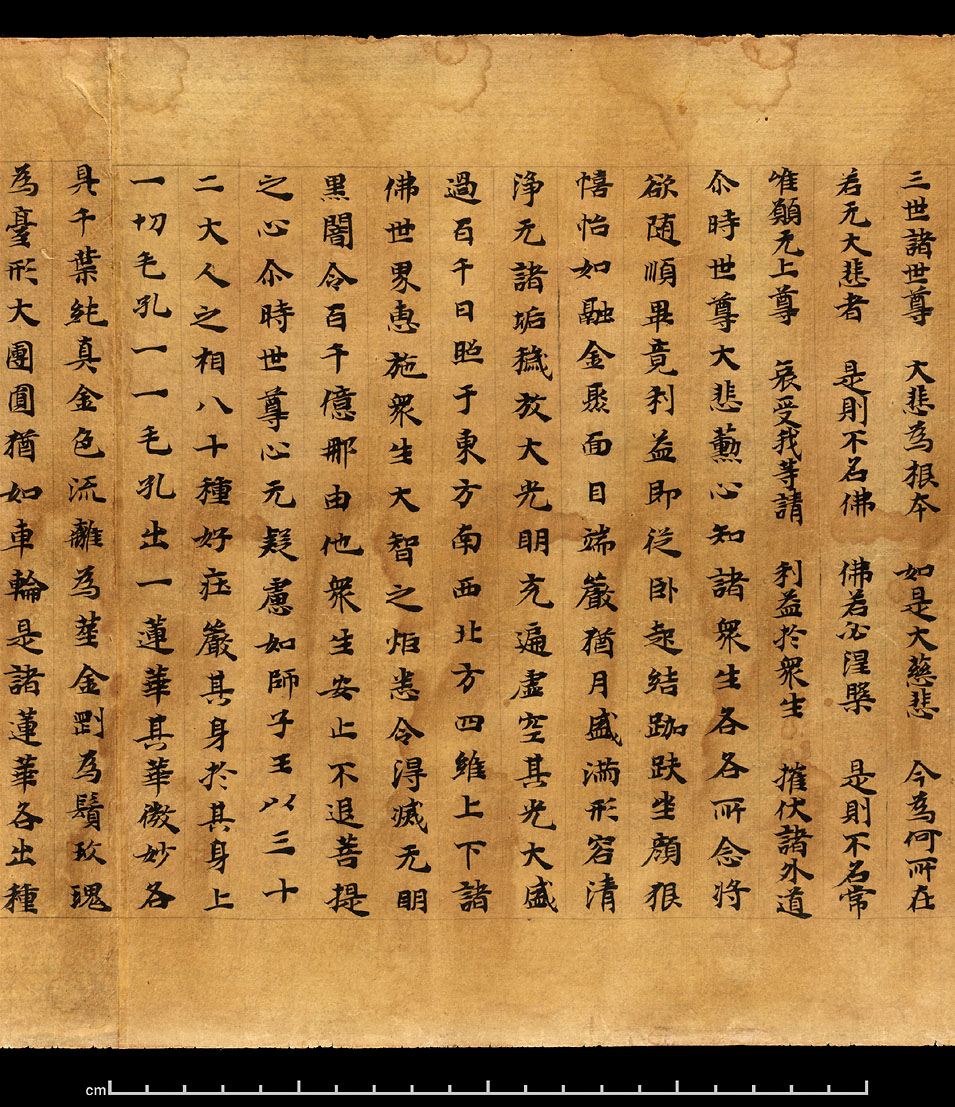 三世諸世尊 大悲為根本 如是大慈悲 今為何所在
若无大悲者 是則不名佛 佛若必涅槃 是則不名常
唯願无上尊 哀受我等請 利益於衆生 摧伏諸外道
尒時世尊大悲勳心知諸衆生各各所念將
欲随順畢竟利益即從卧起結跏趺坐顔狠
憘怡如融金聚面目端嚴猶月盛滿形容清
淨无諸垢穢放大光明充遍虚空其光大盛
過百千日照于東方南西北方四維上下諸
佛世界惠施衆生大智之炬悉令得滅无明
黒闇令百千億那由他衆生安止不退菩提
之心尒時世尊心无疑慮如師子王以三十
二大人之相八十種好莊嚴其身於其身上
一切毛孔一一毛孔出一蓮華其華微妙各
具千葉純真金色流離為莖金剛為鬚玫瑰
為臺形大團圓猶如車輪是諸蓮華各出種
cm